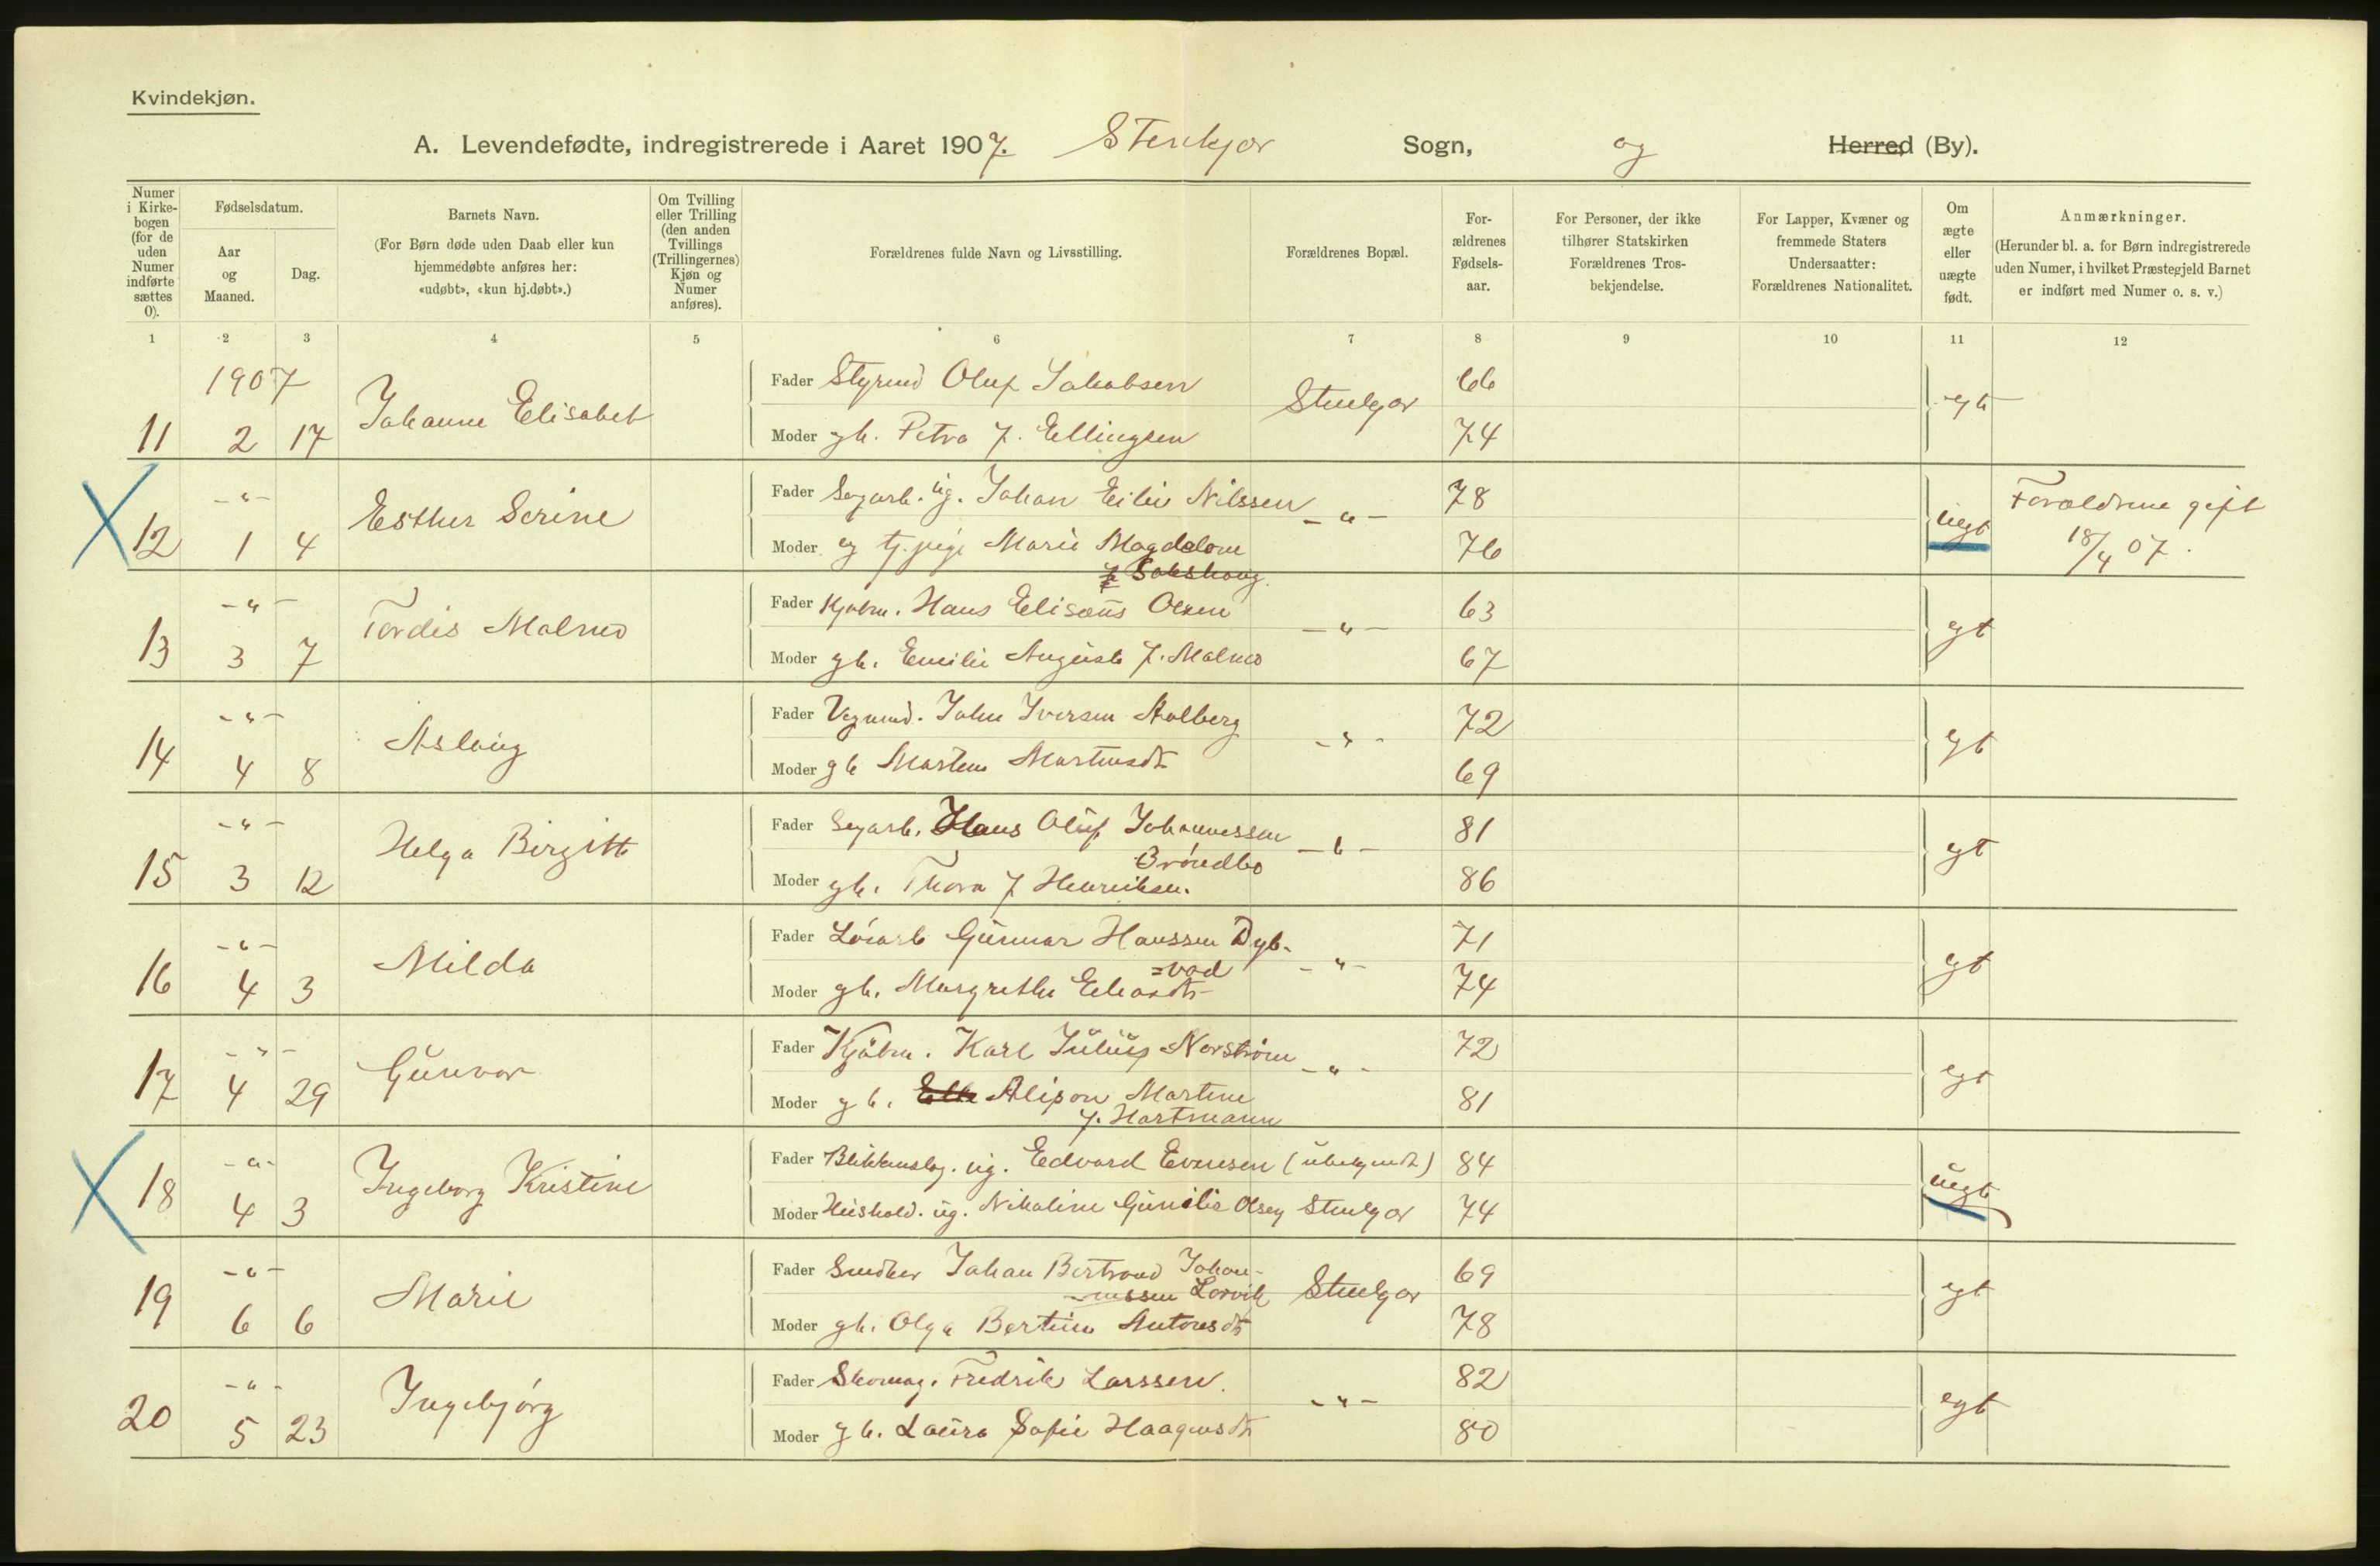 Kvindekjøn.
A. Levendefødte, indregistrerede i Aaret 1907. Stenkjær Sogn, og Herred (By).
Numer i Kirkebogen (for de uden Numer indførte sættes 0).
Fødselsdatum.
Aar og Maaned.
Dag.
Barnets Navn.
(For Børn døde uden Daab eller kun hjemmedøbte anføres her: «udøbt», «kun hj.døbt».)
Om Tvilling eller Trilling (den anden Tvillings (Trillingernes) Kjøn og Numer anføres).
Forældrenes fulde Navn og Livsstilling.
Forældrenes Bopæl.
Forældrenes Fødselsaar.
For Personer, der ikke tilhører Statskirken Forældrenes Trosbekjendelse.
For Lapper, Kvæner og fremmede Staters Undersaatter: Forældrenes Nationalitet.
Om ægte eller uægte født.
Anmærkninger.
(Herunder bl. a. for Børn indregistrerede uden Numer, i hvilket Præstegjeld Barnet er indført med Numer o. s. v.)
1 2 3 4 5 6 7 8 9 10 11 12
1907
Fader Styrmd Oluf Jakobsen Stenkjær 66
11 2 17 Johanne Elisabet egt
Moder gh. Petra f. Ellingsen 74
Fader Sagarb. ug. Johan Eilif Nilssen 78
X 12 -"- 1 4 Esther Serine -"- uegt Forældrene gift 18/4 07.
Moder og tj.pige Marie Magdalone 76
f. Sakshaug.
Fader Kjøbm. Hans Elisæus Olsen 63
13 -"- 3 7 Tordis Malmo -"- egt
Moder gh. Emilie Augusta f. Malmo 67
Fader Vognmd. John Iversen Aalberg 72
14 -"- 4 8 Aslaug -"- egt
Moder gh Martine Martinsdtr 69
Fader Sagarb. Hans Oluf Johannessen 81
Brøndbo
15 -"- 3 12 Helga Birgitte -"- egt
Moder gh. Thora f Henriksen. 86
Fader Løsarb Gunnar Hanssen Dyb- 71
=vad
16 -"- 4 3 Milda -"- egt
Moder gh. Margrethe 74
Fader Kjøbm. Karl Julius Norstrøm 72
17 -"- 4 29 Gunvor -"- egt
Moder gh. Alison Martine 81
f. Hartmann
Fader Blikkenslag. ug. Edvard Evensen (ubekjendt) 84
X 18 -"- 4 3 Ingeborg Kristine uegt
Moder Hushold. ug. Nikoline Gunilia Olsen Stenkjær 74
Fader Snedker Johan Bertrand Johan- 69
nessen Lorvik
19 -"- 6 6 Marie Stenkjær egt
Moder gh. Olga Bertine Antonsdtr 78
Fader Skomag. Fredrik Larssen. 82
20 -"- 5 23 Ingebjørg -"- egt
Moder gh. Laura Sofie Haagensdtr 80